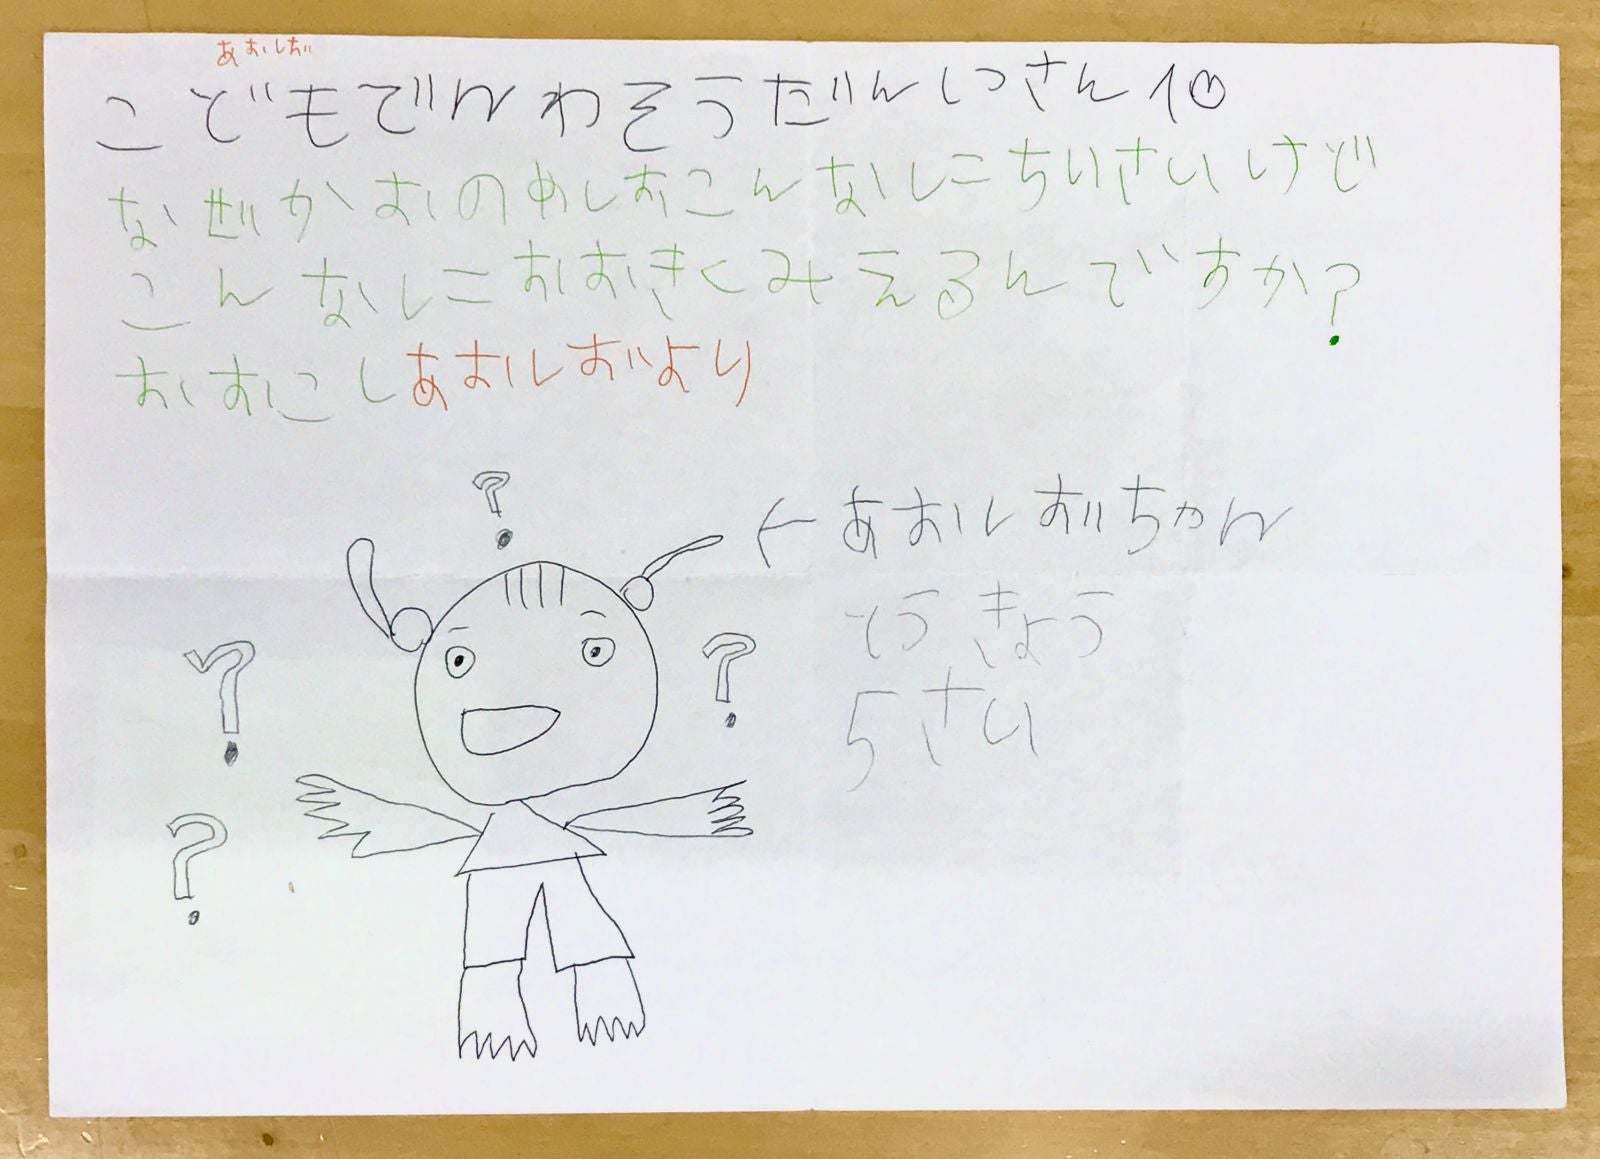 あおば
こどもでんわそうだんしつさん
なぜかおのめはこんなにちいさいけど
こんなにおおきくみえるんですか?
おおこしあおばより
? ? ? ?
←あおばちゃん
とうきょう
5さい